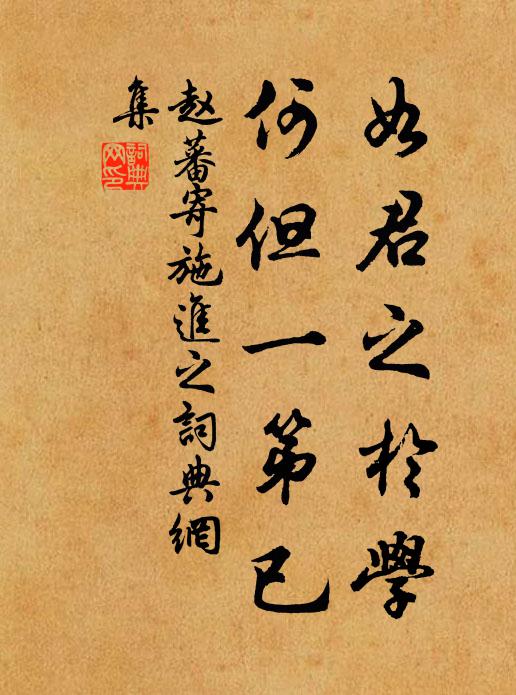 如君之於學
何但一第已
赵蕃寄施進之詞典網
集
詞典
网印